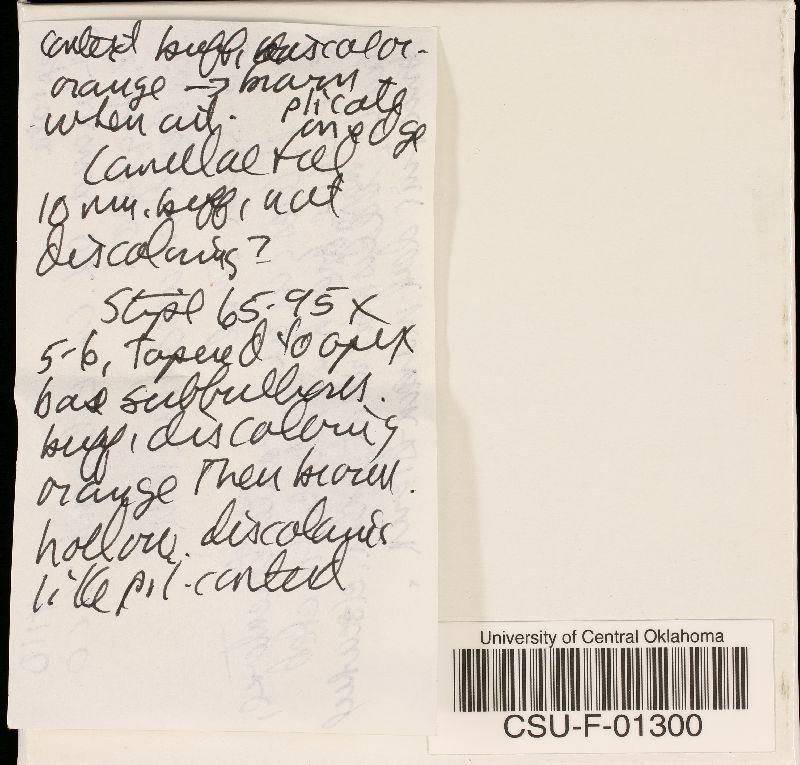 context buff, discolor-
orange → brown
when cut. plicate
on edge
Lamellae free
10 mm. buff, not
discoloring?
Stipe 65-95 x
5-6, tapered to apex
base subbulbous.
buff, discoloring
orange then brown.
hollow. discoloring
like pil. context
University of Central Oklahoma
CSU-F-01300